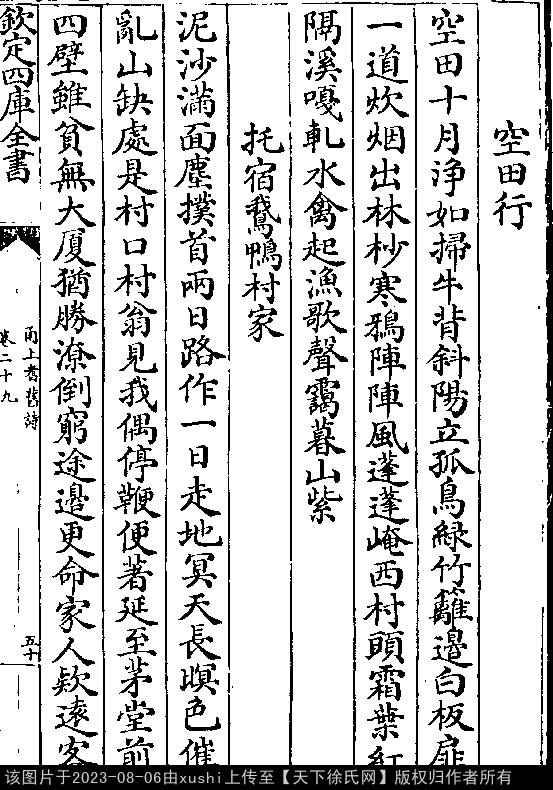 空田行
空田十月淨如掃牛背斜陽立孤鳥緑竹籬邉白板扉
一道炊烟出林杪寒鴉陣陣風蓬蓬崦西村頭霜葉紅
隔溪嘎軋水禽起漁歌聲靄暮山紫
托宿鵞鴨村家
泥沙滿面塵撲首兩日路作一日走地冥天長暝色催
亂山缺處是村口村翁見我偶停鞭便著延至茅堂前
四壁雖貧無大厦猶勝潦倒窮途邉更命家人欵遠客
欽定四庫全書
甬上耆舊詩
卷二十九
五十
该图片于2023-08-06由xushi上传至【天下徐氏网】版权归作者所有